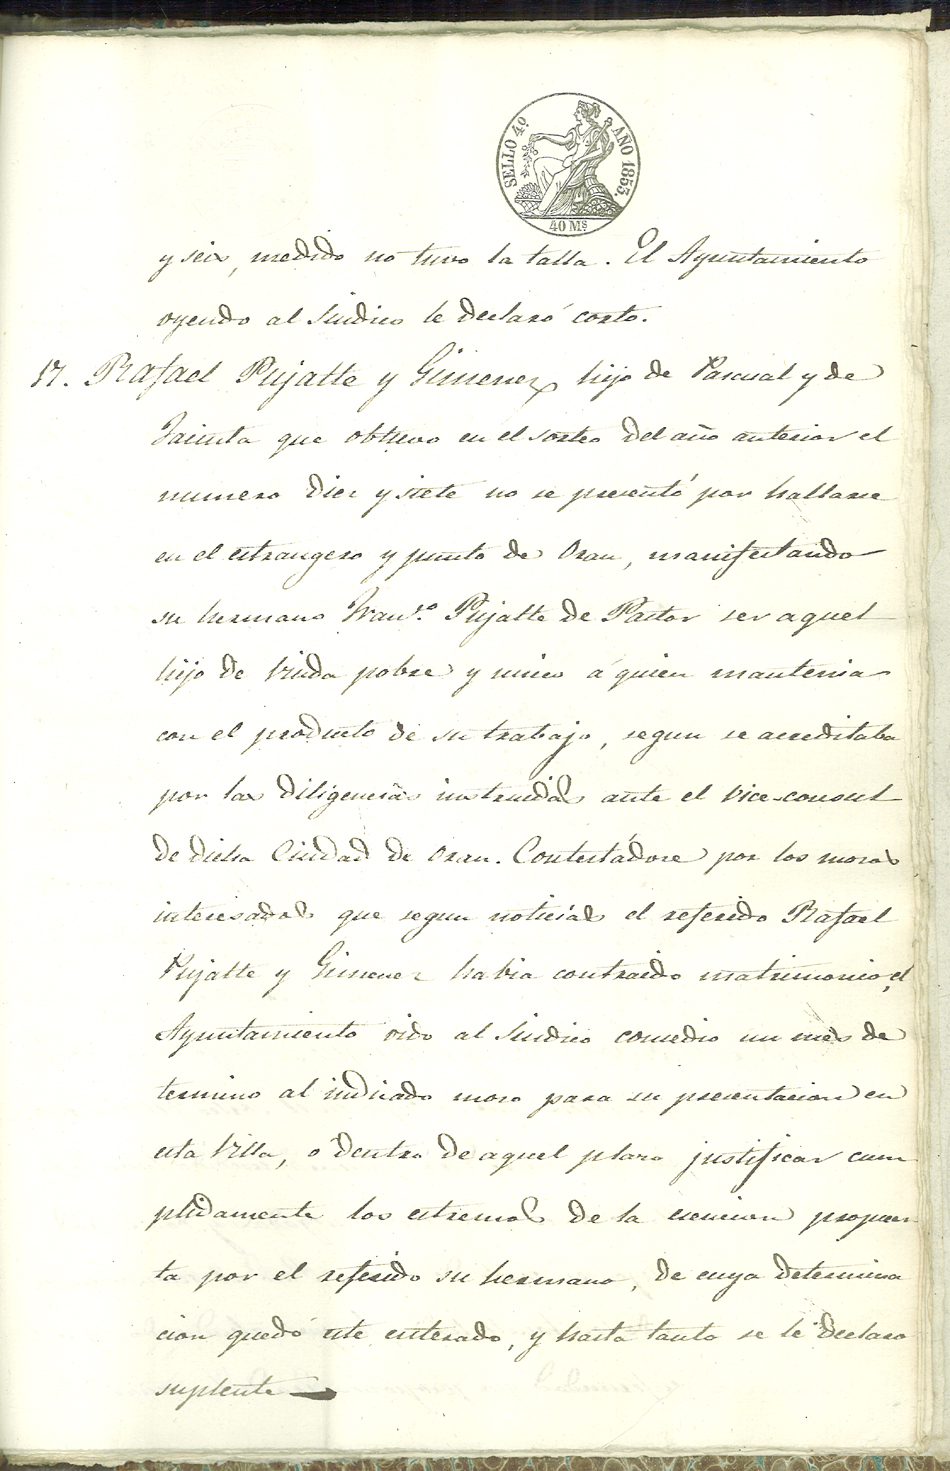 SELLO 4º. AÑO 1853.
40 Ms
y seis, medido no tuvo la talla. El Ayuntamiento
oyendo al Sindico le declaró corto.
17. Rafael Pujalte y Gimenez hijo de Pascual y de
Jacinta que obtuvo en el sorteo del año anterior el
numero diez y siete no se presentó por hallarse
en el estrangero y punto de Oran, manifestando
su hermano Franco. Pujalte de Pastor ser aquel
hijo de viuda pobre y unico á quien mantenia
con el producto de su trabajo, segun se acreditaba
por las diligencias instruidas ante el Vice-consul
de dicha Ciudad de Oran. Contestádose por los mozos
interesados que segun noticias el referido Rafael
Pujalte y Gimenez habia contraido matrimonio, el
Ayuntamiento oido al Sindico concedio un mes de
termino al indicado mozo para su presentacion en
esta Villa, o dentro de aquel plazo justificar cum
plidamente los estremos de la esencion propues
ta por el referido su hermano, de cuya determina
cion quedó este enterado, y hasta tanto se le declaro
suplente